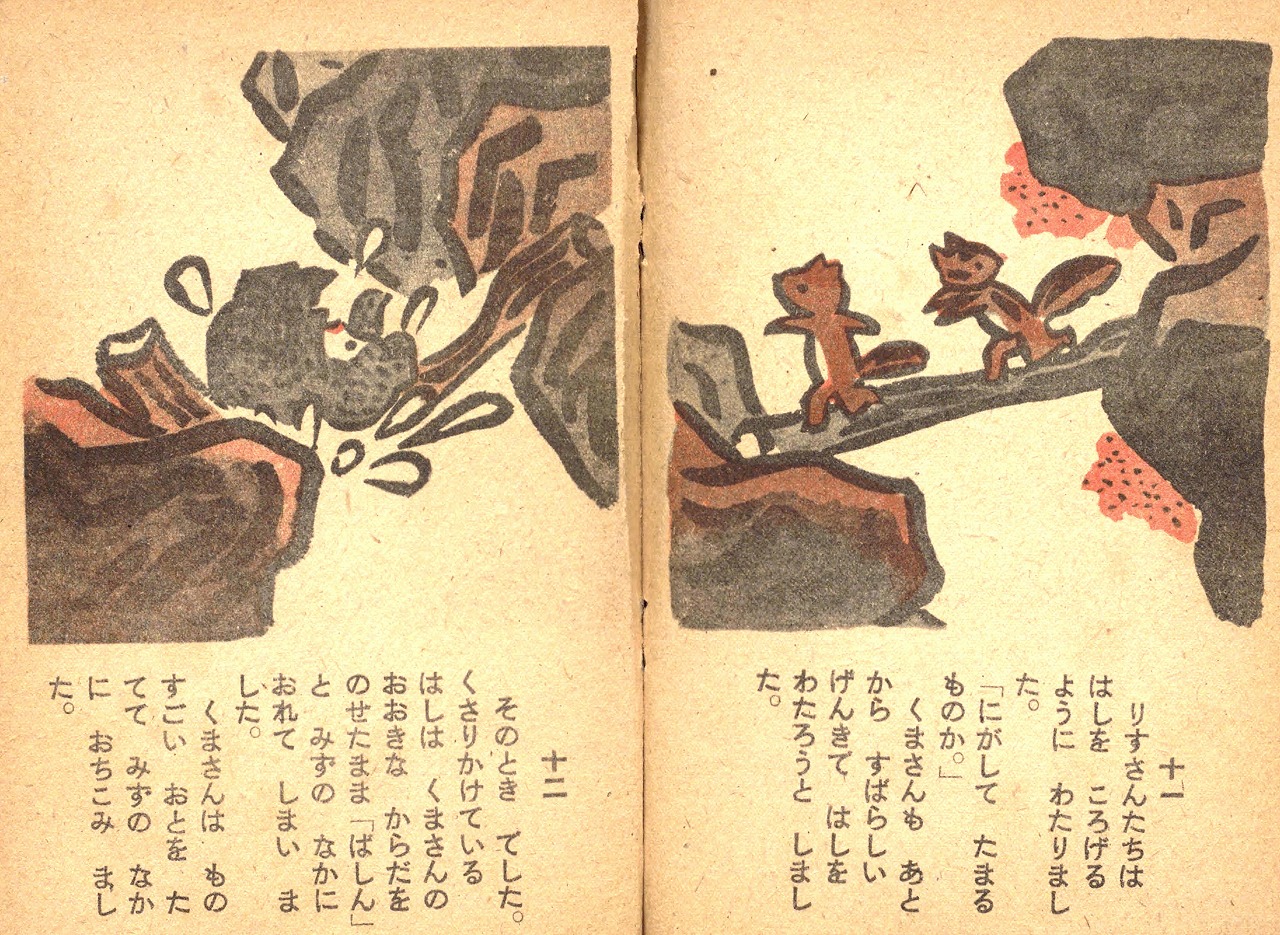 十一
りすさんたちは
はしを ころげる
ように わたりまし
た。
「にがして たまる
ものか。」
くまさんも あと
から すばらしい
げんきで はしを
わたろうと しまし
た。
十二
そのとき でした。
くさりかけている
はしは くまさんの
おおきな からだを
のせたまま「ばしん」
と みずの なかに
おれて しまい ま
した。
くまさんは もの
すごい おとを た
てて みずの なか
に おちこみ まし
た。